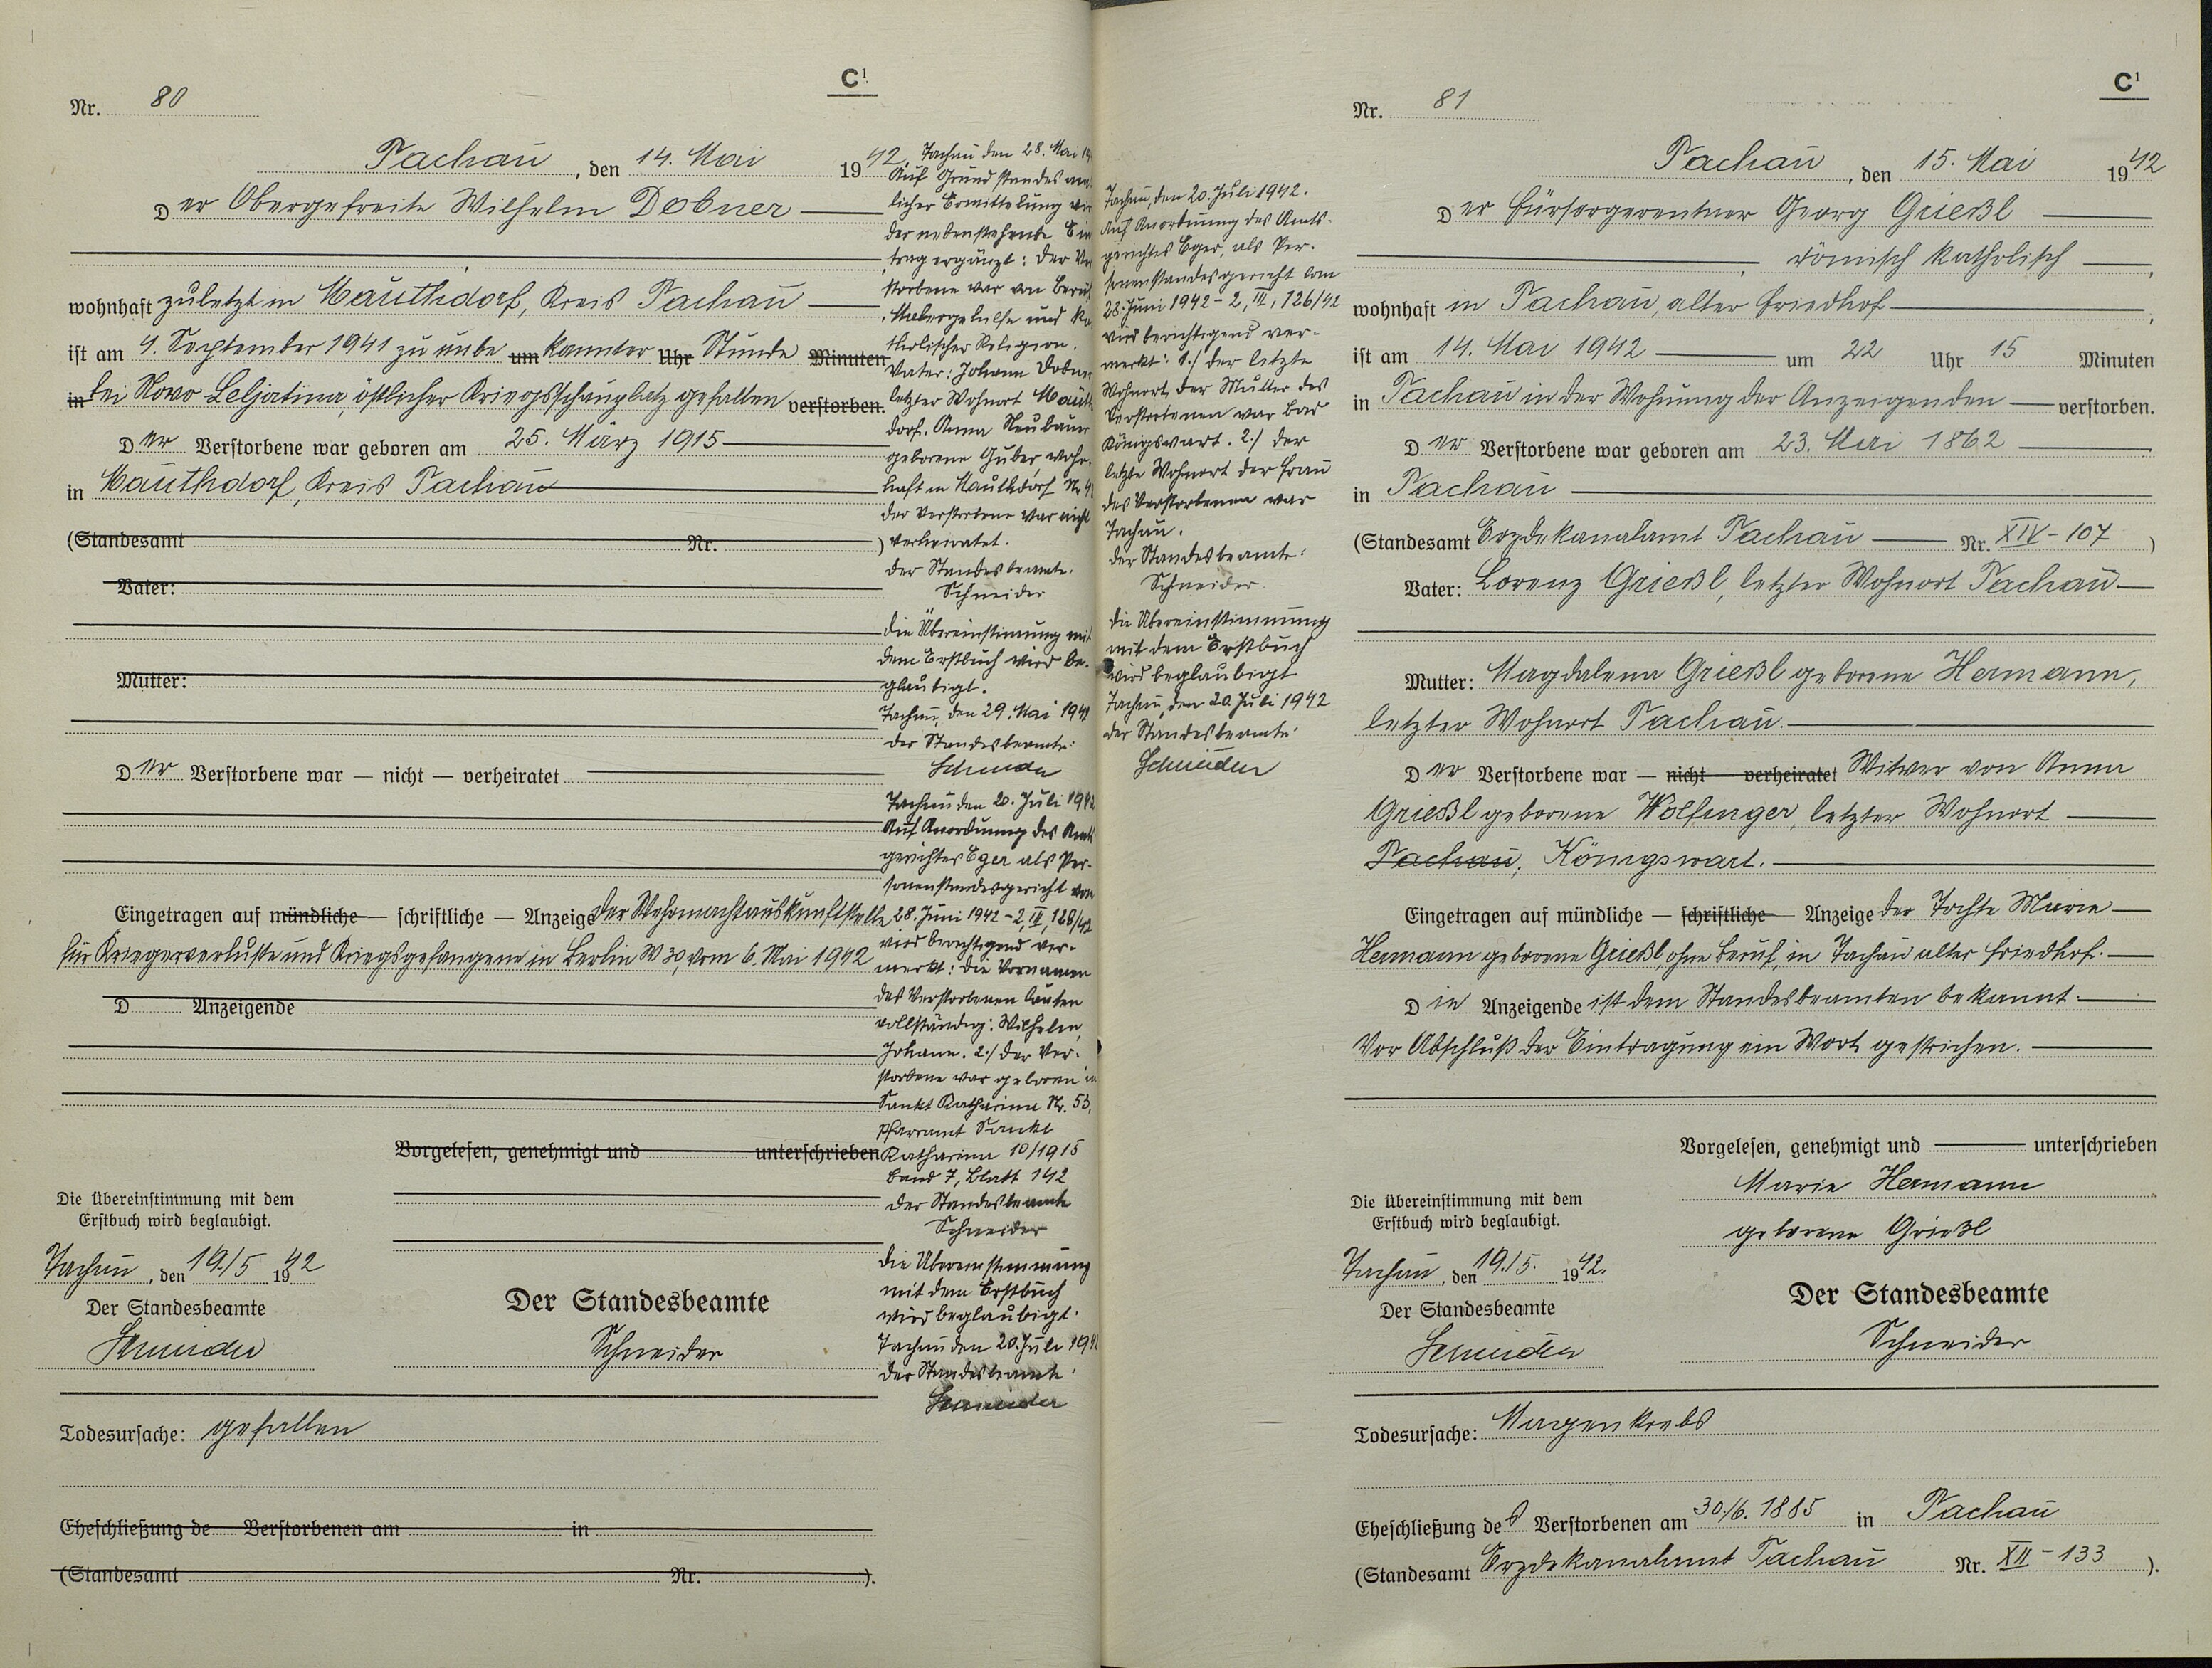 C¹
Nr. 80
Tachau, den 14. Mai 1942.
Der Obergefreite Wilhelm Dobner
wohnhaft zuletzt in Mauthdorf, Kreis Tachau
ist am 4. September 1941 zu unbe um kannter Uhr Stunde Minuten
in bei Nowo Seljatina, östlicher Kriegsschauplatz gefallen verstorben.
Der Verstorbene war geboren am 25. März 1915
in Mauthdorf, Kreis Tachau
(Standesamt Nr. )
Vater:
Mutter:
Der Verstorbene war — nicht — verheiratet
Eingetragen auf mündliche — schriftliche — Anzeige der Wehrmachtauskunftstelle
für Kriegerverluste und Kriegsgefangene in Berlin W 30, vom 6. Mai 1942
D Anzeigende
Vorgelesen, genehmigt und unterschrieben
Die Übereinstimmung mit dem
Erstbuch wird beglaubigt.
Tachau, den 19/5 1942
Der Standesbeamte
Schneider
Der Standesbeamte
Schneider
Todesursache: gefallen
Eheschließung de Verstorbenen am in
(Standesamt Nr. ).
Tachau den 28. Mai 19
Auf Grund standesam
licher Ermittelung wir
der nebenstehende Ein
trag ergänzt: Der Ver
storbene war von Beruf
Malergehilfe und ka
tholischer Religion.
Vater: Johann Dobner
letzter Wohnort Mauth
dorf. Anna Neubauer
geborene Guber, wohn-
haft in Mauthdorf Nr 4
der Verstorbene war nicht
verheiratet.
Der Standesbeamte.
Schneider
Die Übereinstimmung mit
dem Erstbuch wird be-
glaubigt.
Tachau, den 29. Mai 1942
Der Standesbeamte:
Schneider
Tachau den 20. Juli 1942
Auf Anordnung des Amts
gerichtes Eger als Per-
sonenstandsgericht vom
28. Juni 1942 - 2, IV, 128/42
wird berichtigend ver-
merkt: Die Vornamen
des Verstorbenen lauten
vollständig: Wilhelm,
Johann. 2./ der Ver-
storbene war geboren in
Sankt Katharina Nr. 53,
Pfarramt Sankt
Katharina 10/1915
Band 7, Blatt 142
Der Standesbeamte
Schneider
Die Übereinstimmung
mit dem Erstbuch
wird beglaubigt.
Tachau den 20. Juli 1942
Der Standesbeamte:
Schneider
Tachau, den 20. Juli 1942.
Auf Anordnung des Amts-
gerichtes Eger, als Per-
sonenstandesgericht vom
28. Juni 1942 - 2, III, 126/42
wird berichtigend ver-
merkt: 1./ der letzte
Wohnort der Mutter des
Verstorbenen war Bad
Königswart. 2./ der
letzte Wohnort der Frau
des Verstorbenen war
Tachau.
Der Standesbeamte:
Schneider.
Die Übereinstimmung
mit dem Erstbuch
wird beglaubigt
Tachau, den 20. Juli 1942
Der Standesbeamte:
Schneider
C¹
Nr. 81
Tachau, den 15. Mai 1942
Der Fürsorgerentner Georg Grießl
römisch katholisch
wohnhaft in Tachau, alter Friedhof
ist am 14. Mai 1942 um 22 Uhr 15 Minuten
in Tachau in der Wohnung der Anzeigenden verstorben.
Der Verstorbene war geboren am 23. Mai 1862
in Tachau
(Standesamt Erzdekanalamt Tachau Nr. XIV - 107 )
Vater: Lorenz Grießl, letzter Wohnort Tachau
Mutter: Magdalena Grießl geborene Hermann,
letzter Wohnort Tachau.
Der Verstorbene war — nicht — verheiratet Witwer von Anna
Grießl geborene Wolfinger, letzter Wohnort
Tachau, Königswart.
Eingetragen auf mündliche — schriftliche — Anzeige der Tochte Marie
Hermann geborene Grießl, ohne Beruf, in Tachau alter Friedhof.
Die Anzeigende ist dem Standesbeamten bekannt.
Vor Abschluß der Eintragung ein Wort gestrichen.
Vorgelesen, genehmigt und unterschrieben
Marie Hermann
geborene Grießl
Die Übereinstimmung mit dem
Erstbuch wird beglaubigt.
Tachau, den 19./5. 1942.
Der Standesbeamte
Schneider
Der Standesbeamte
Schneider
Todesursache: Magenkrebs
Eheschließung des Verstorbenen am 30./6. 1885 in Tachau
(Standesamt Erzdekanalamt Tachau Nr. XII - 133 ).